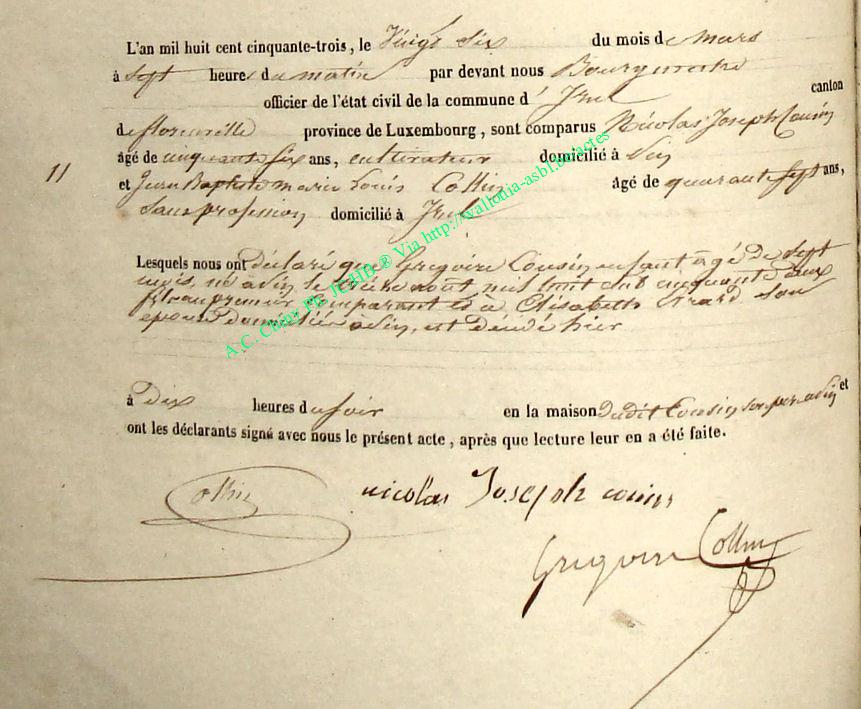 L'an mil huit cent cinquante-trois, le Vingt Six du mois de Mars
à Sept heures du matin par devant nous Bourgmestre
officier de l'état civil de la commune d' Izel canton
de florenville province de Luxembourg, sont comparus Nicolas Joseph Cousin
11 âgé de cinquante six ans, cultivateur domicilié à
et Jean Baptiste Marie Louis Collin âgé de quarante sept ans,
Sans profession domicilié à Izel
Lesquels nous ont déclaré que Grégoire Cousin enfant âgé de Sept
mois, né le août mil huit cent cinquante deux
fils au premier comparant & à Elisabeth son
épouse domiciliés est décédé hier
à Dix heures du soir en la maison dudit Cousin son père et
ont les déclarants signé avec nous le présent acte, après que lecture leur en a été faite.
Collin nicolas Joseph cousin
Grégoire Collin
A.C. Chiny Ph. JCHD ® Via http://wallonia-asbl.be/actes